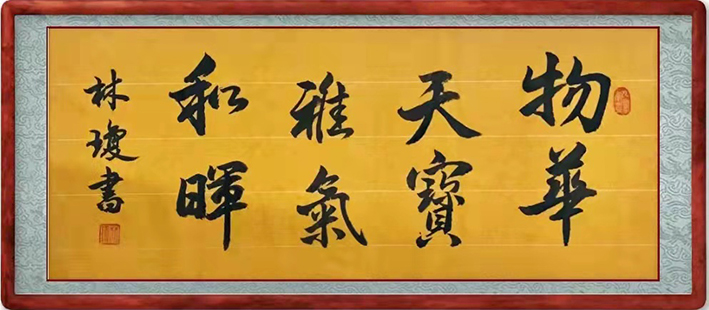 物華
天寶
雅氣
和暉
林瓊書